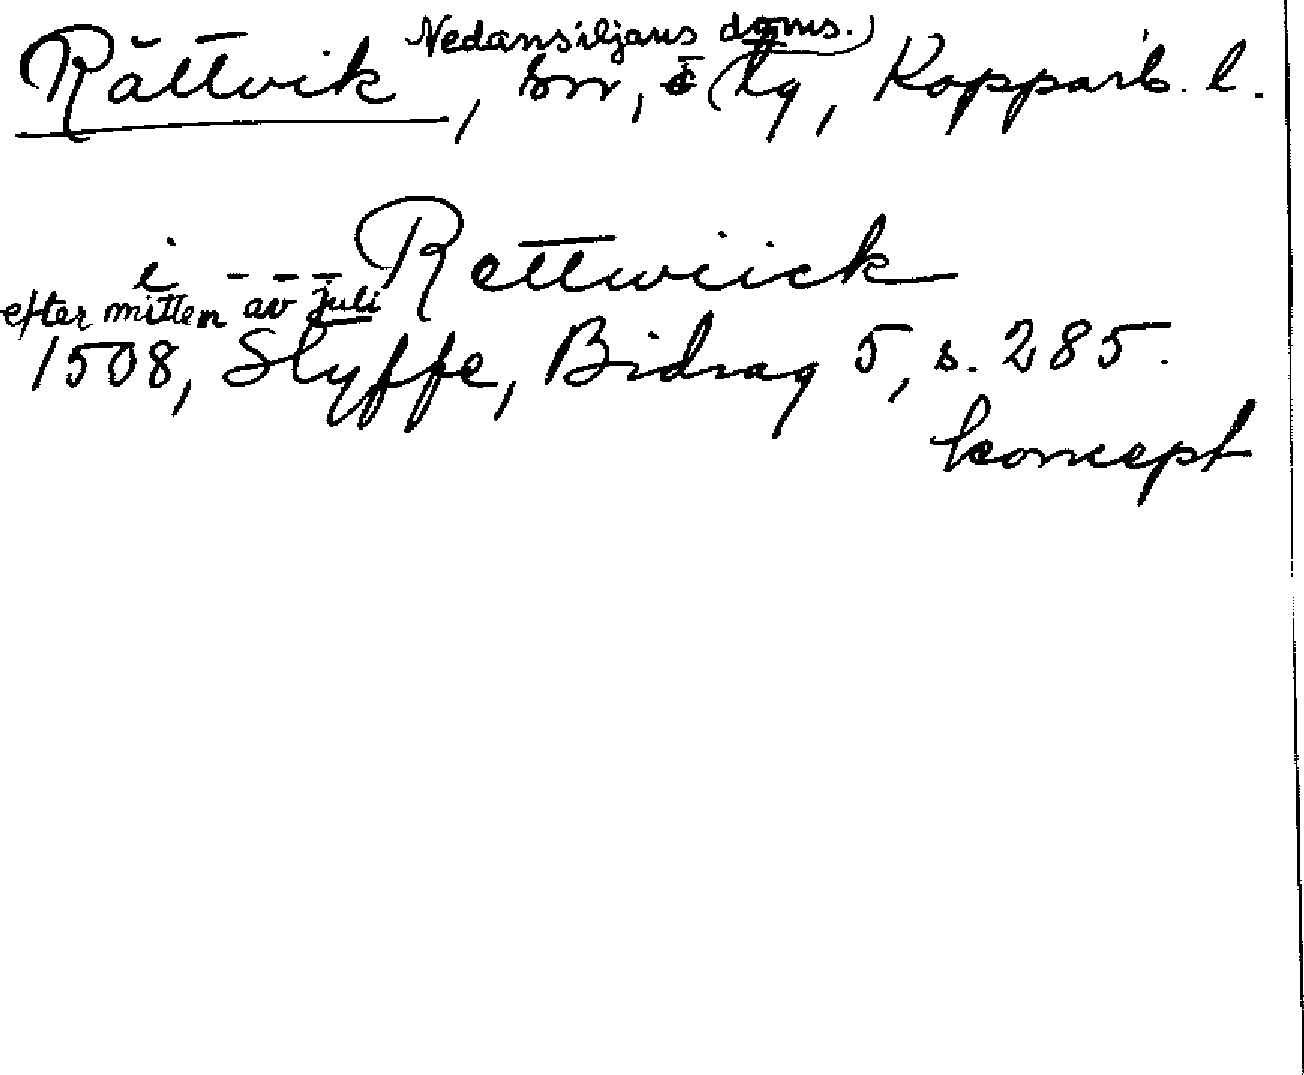 Rättvik, sn, Nedansiljans doms. tg, Kopparb. l.
i --- Rettwiick
efter mitten av juli
1508, Styffe, Bidrag 5, s. 285.
koncept